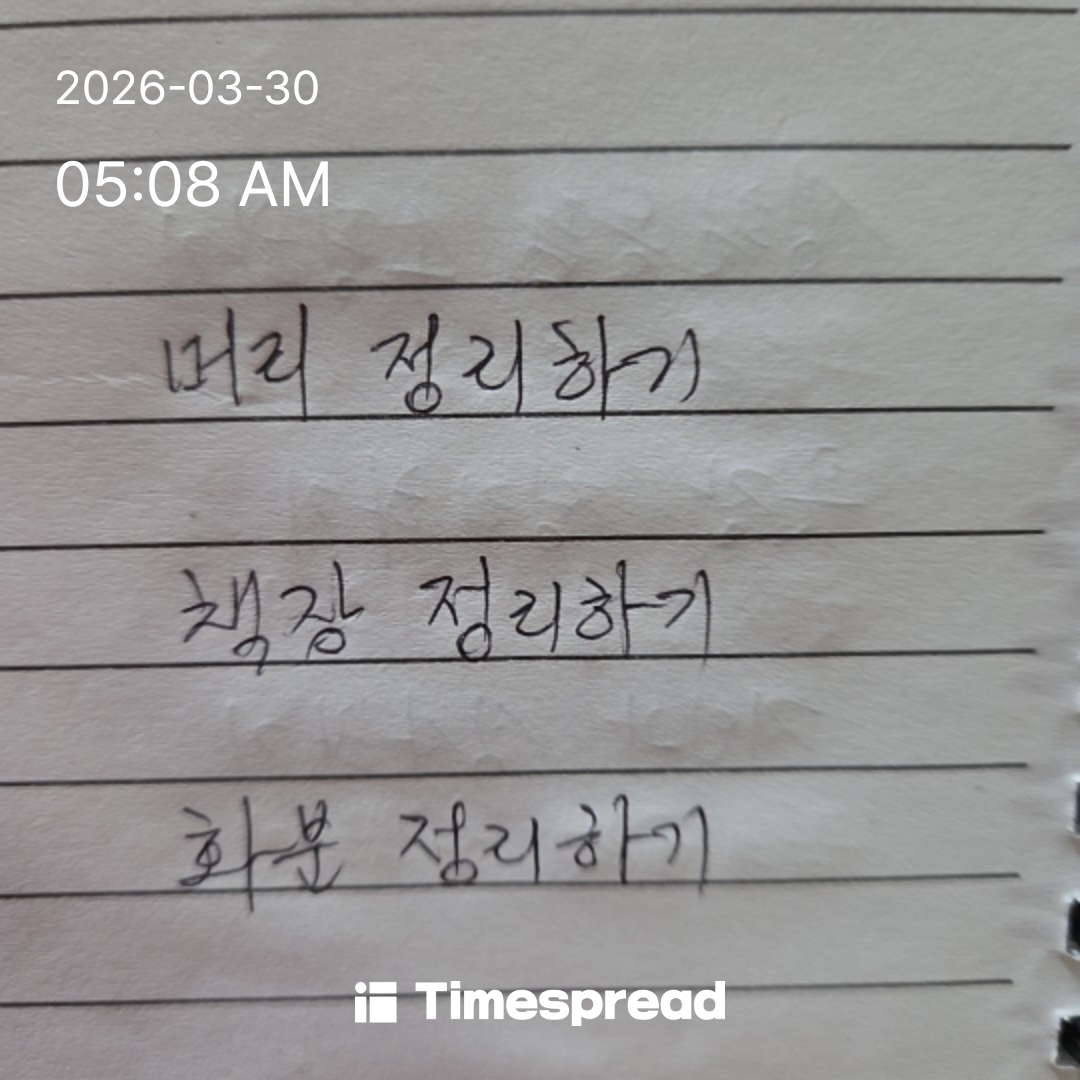 2026-03-30
05:08 AM
머리 정리하기
책장 정리하기
화분 정리하기
Timespread